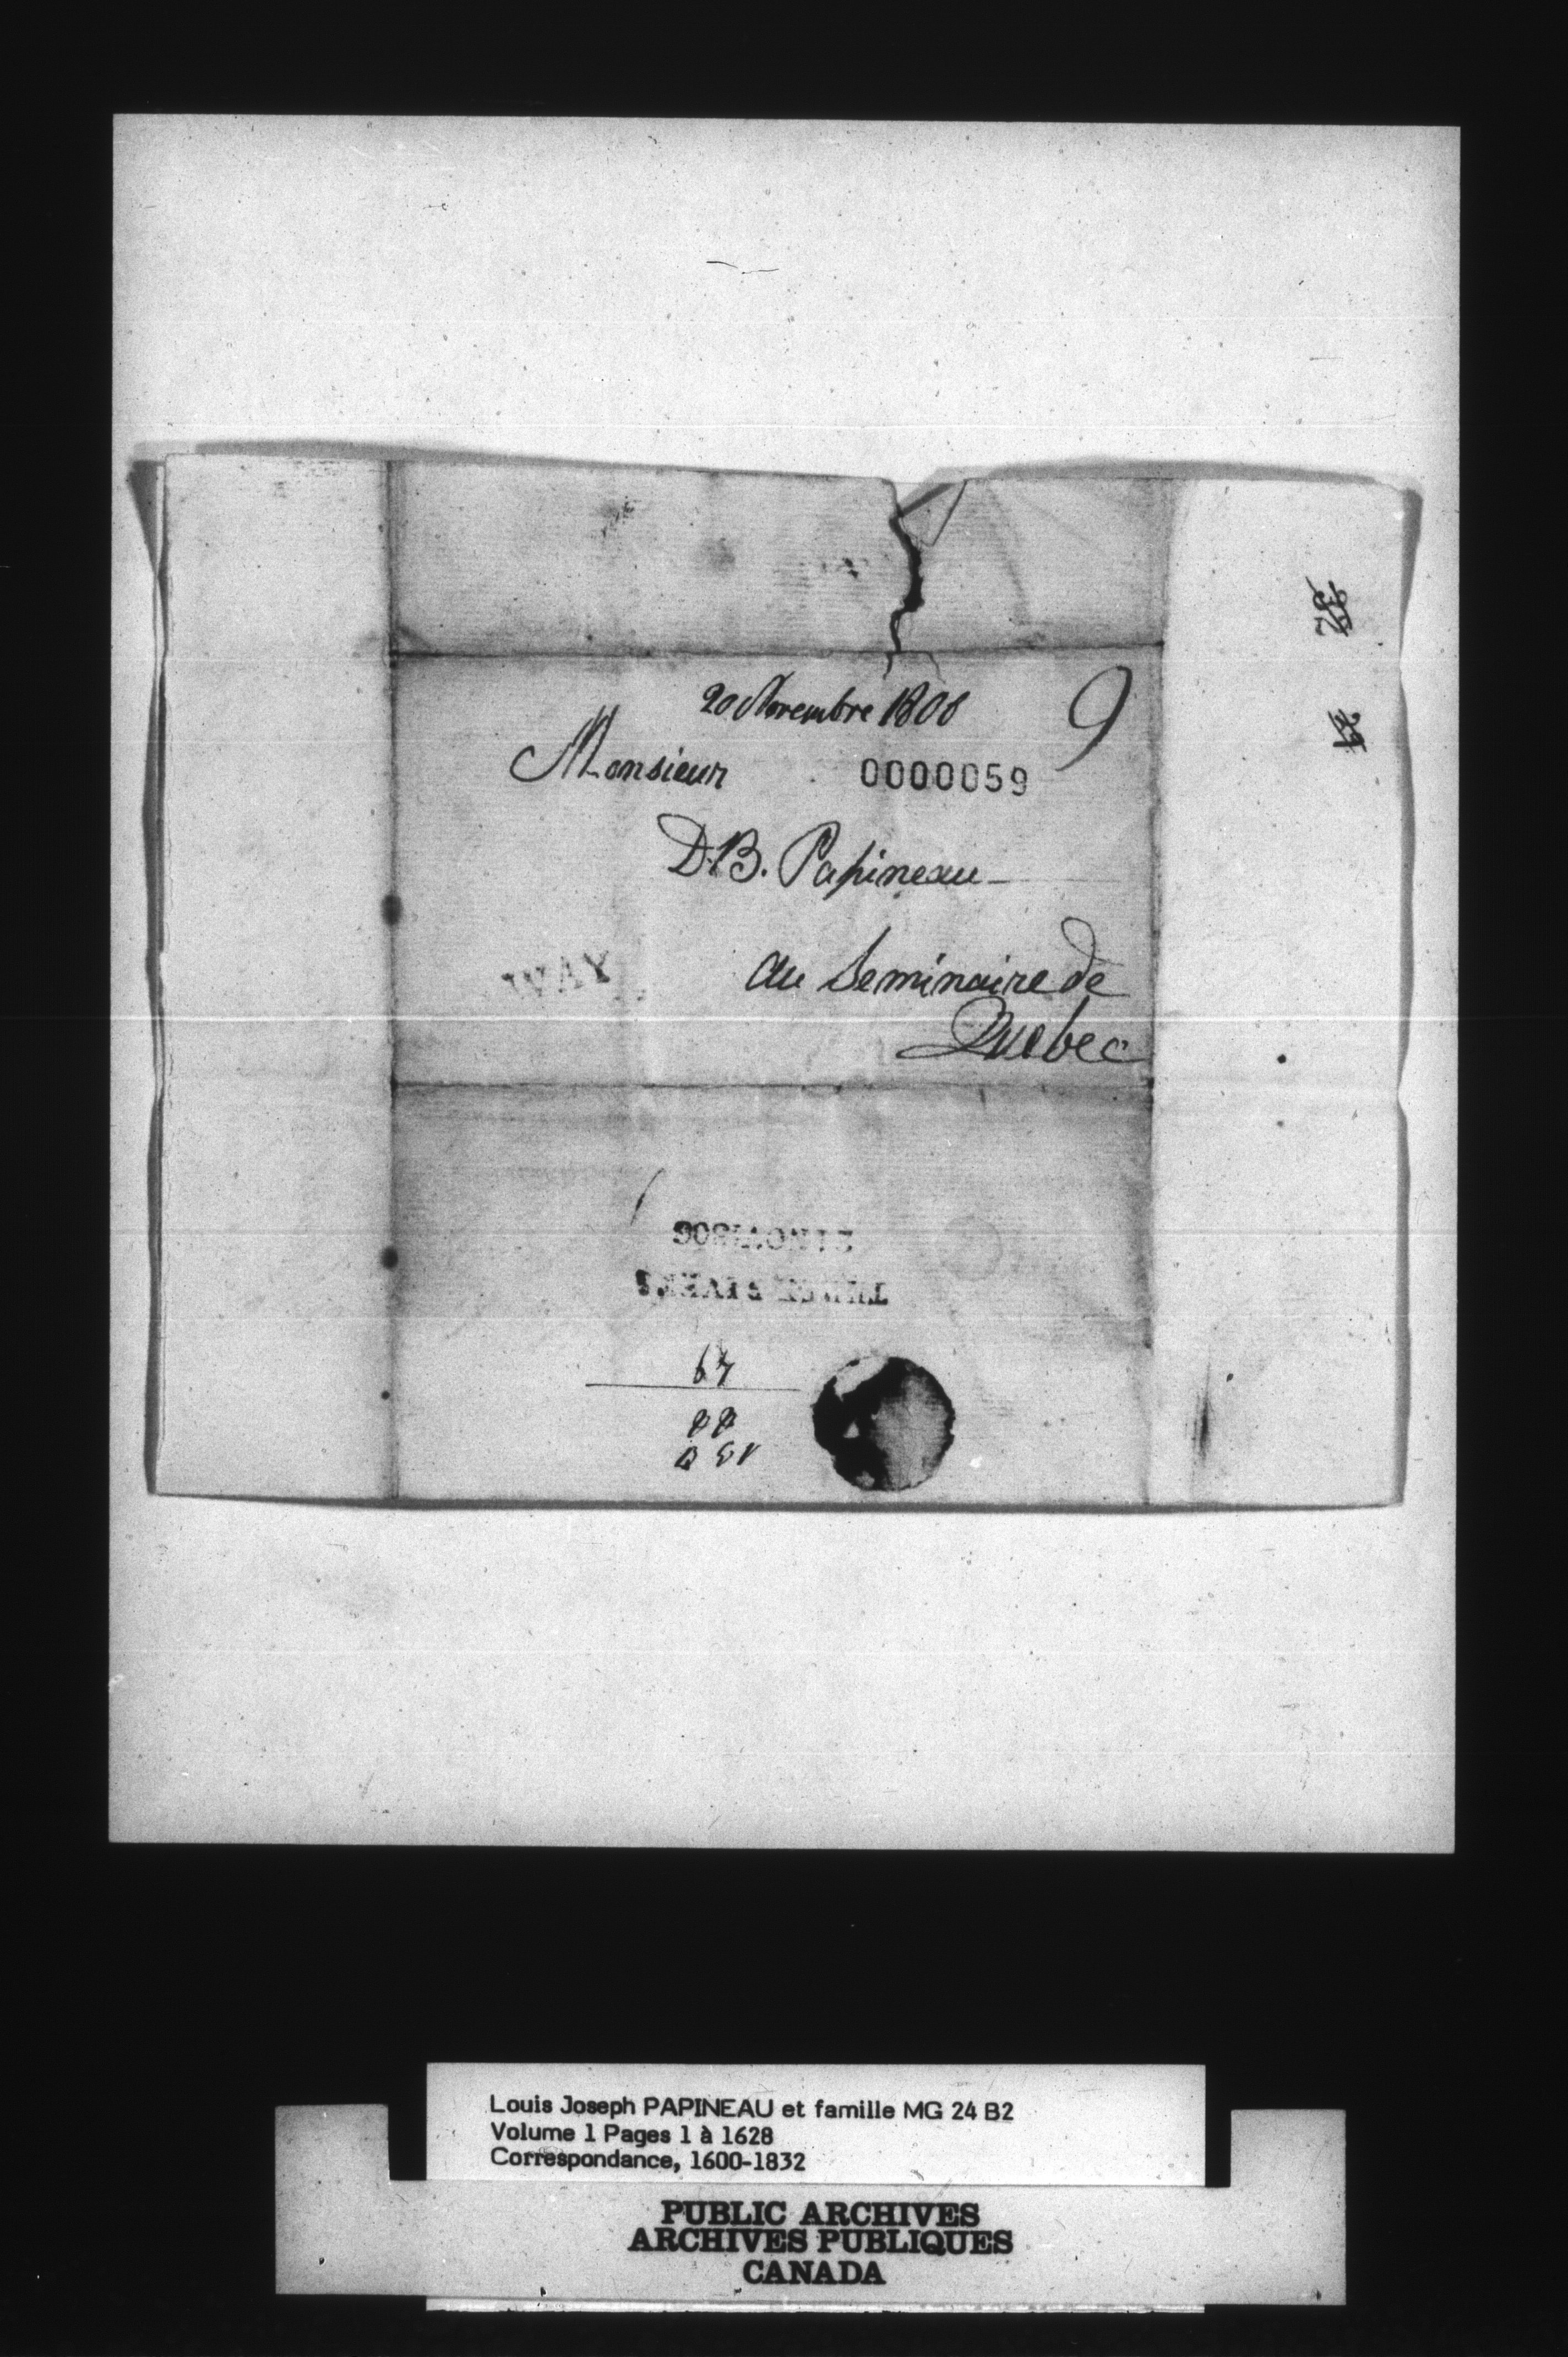 20 Novembre 1806
9
Monsieur
0000059
D.B. Papineau
WAY
au Seminaire de
Quebec
Louis Joseph PAPINEAU et famille MG 24 B2
Volume 1 Pages 1 à 1628
Correspondance, 1600-1832
PUBLIC ARCHIVES
ARCHIVES PUBLIQUES
CANADA